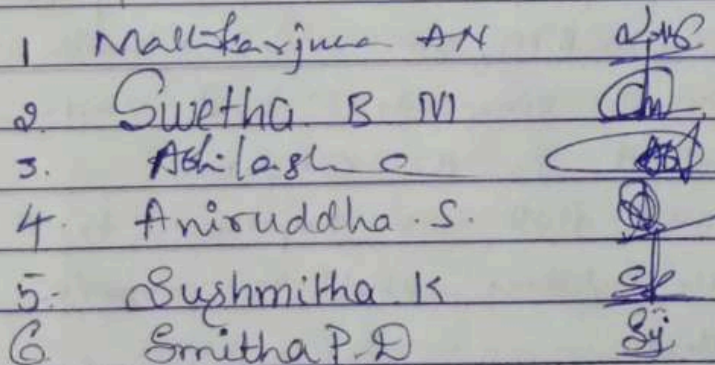 1 Mallikarjuna AN
2. Swetha. B M
3. Abhilash C
4. Aniruddha. S.
5. Sushmitha. K
6 Smitha P. D